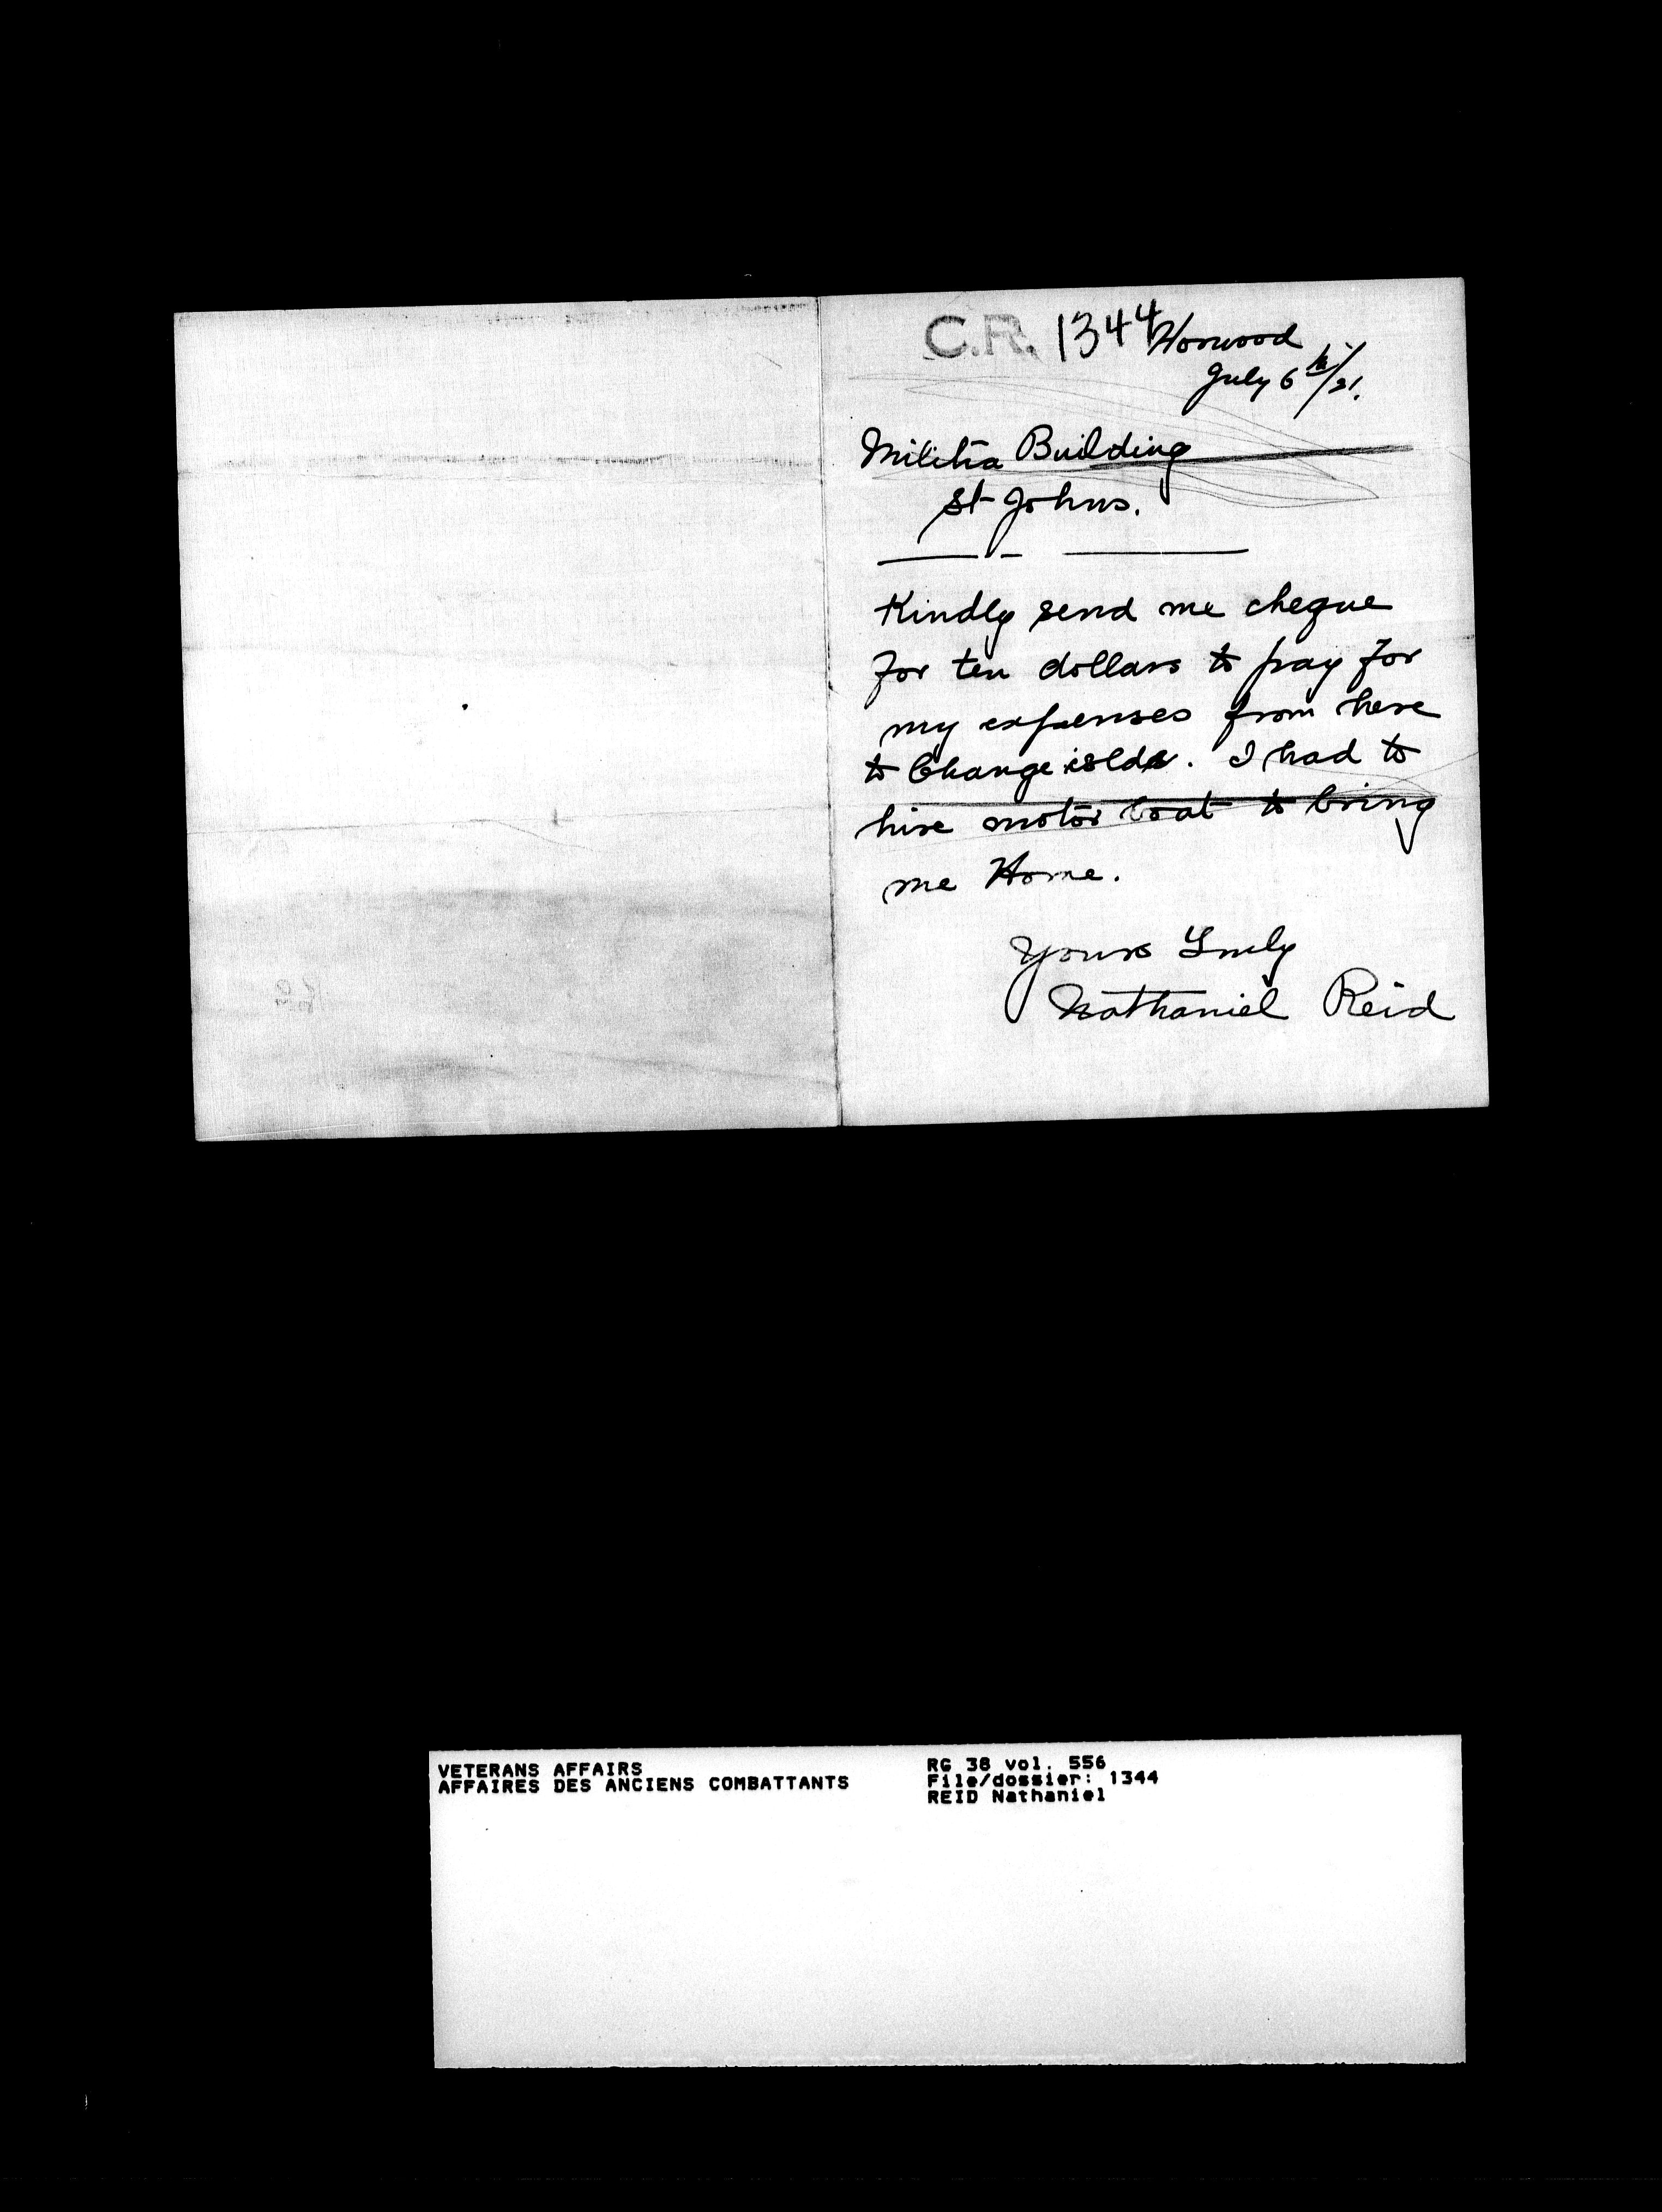 C.R. 1344 Horwood
July 6th/21.
Militia Building
St Johns.
Kindly send me cheque
for ten dollars to pay for
my expenses from here
to Change islds. I had to
hire motor boat to bring
me Home.
Yours Truly
Nathaniel Reid
VETERANS AFFAIRS
AFFAIRES DES ANCIENS COMBATTANTS
RG 38 vol. 556
File/dossier: 1344
REID Nathaniel